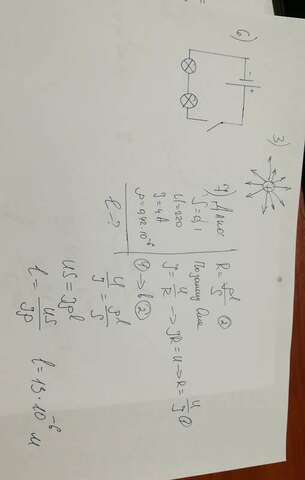 6)
- +
3)
+
4) Дано
S=0,1
U=220
J=4A
ρ=0,42·10⁻⁶
ℓ-?
R=ρℓ/S ②
По закону Ома
J=U/R → JR=U → R=U/J ①
① → в ②
U/J = ρℓ/S
US=Jρℓ
ℓ=US/Jρ ℓ=13·10⁻⁶ м